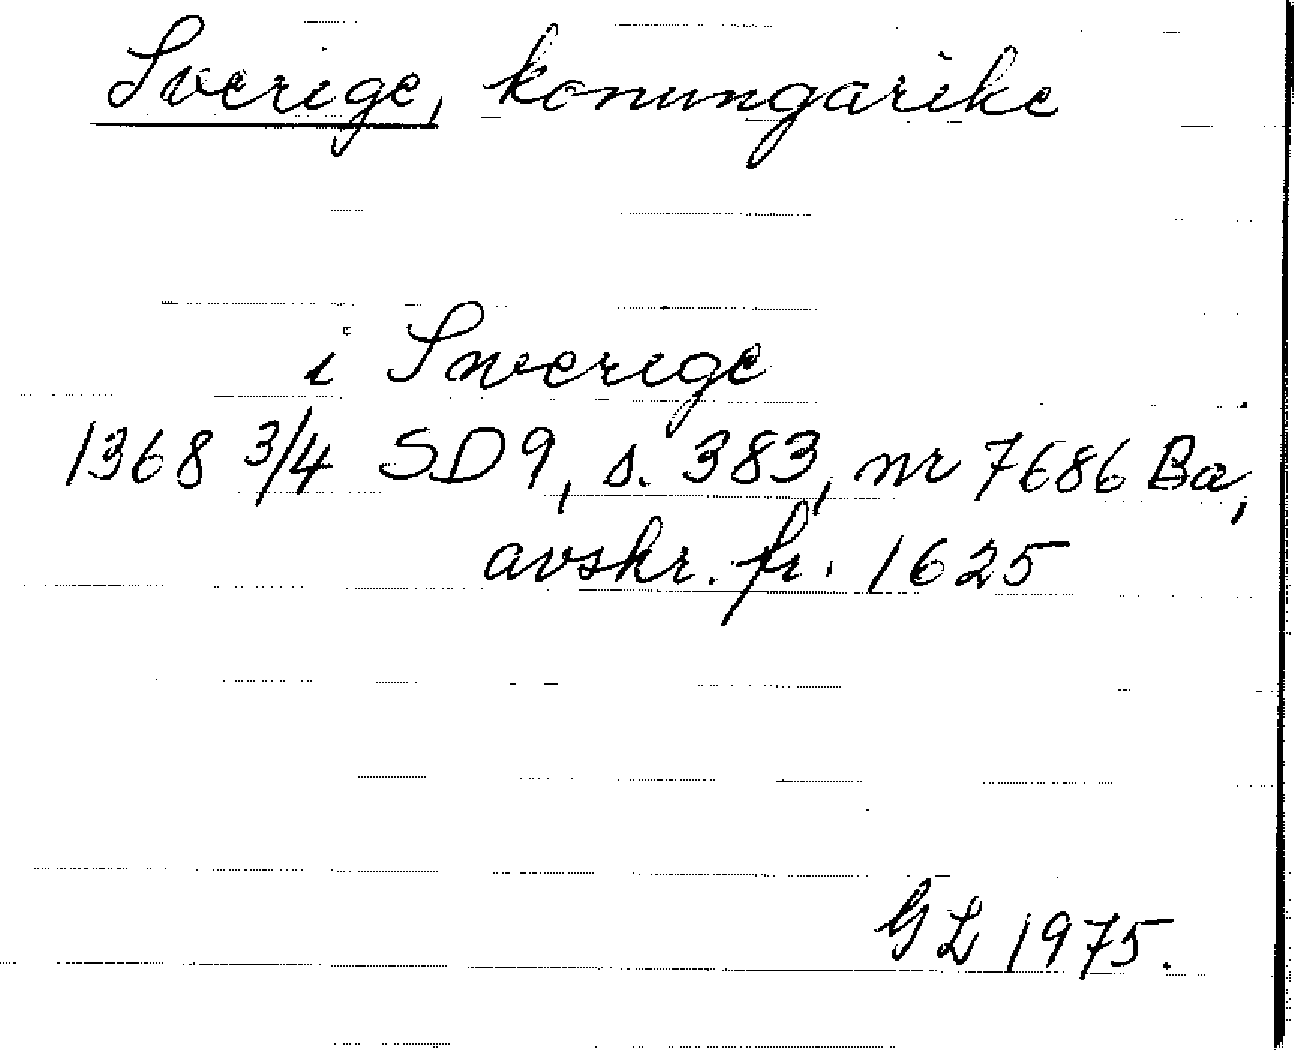 Sverige, konungarike
i Swerige
1368 3/4 SD9, s. 383, nr 7686 Ba,
avskr. fr. 1625
GL 1975.